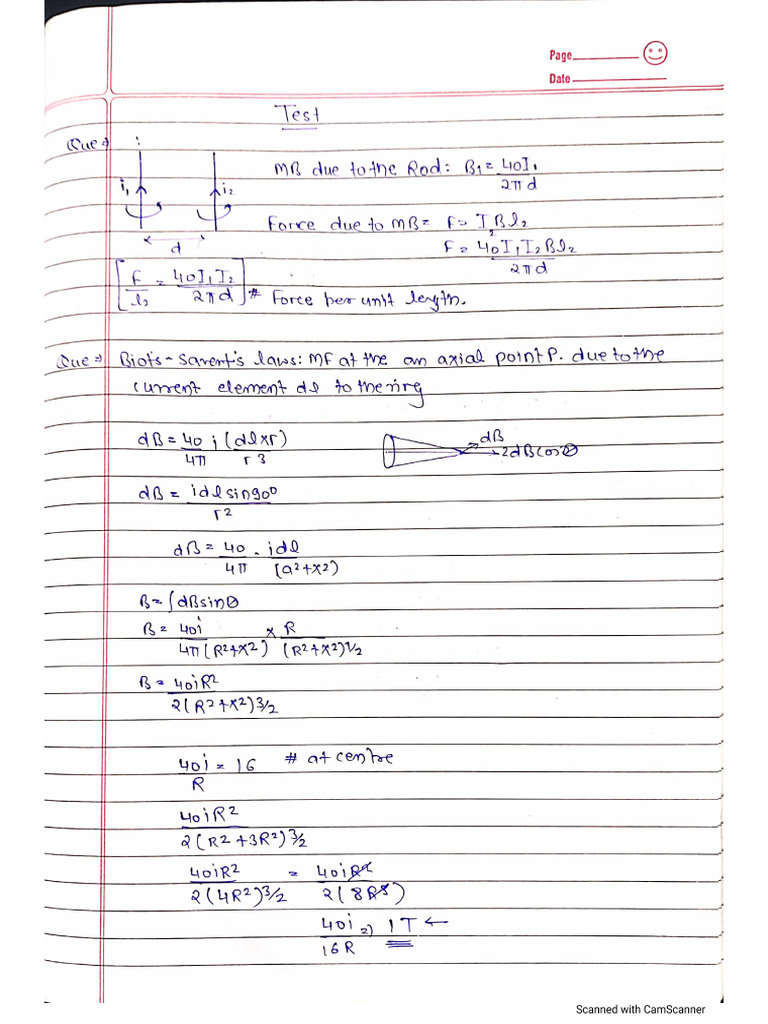 Page
Date
Test
Que⇒
i
i₁ i₂
d
MB due to the Rod: B₁ = 40I₁/2πd
Force due to MB = F = I₂Bl₂
F = 40I₁I₂Bl₂/2πd
[F/l₂ = 40I₁I₂/2πd] # Force per unit length.
Que⇒ Biots-Savert's laws: MF at the an axial point P. due to the
current element dl to the ring
dB = 40/4π i(dl×r)/r3
dB
2dBcosθ
dB = idlsin90°/r2
dB = 40/4π . idl/(a2+x2)
B = ∫dBsinθ
B = 40i/4π(R2+x2) × R/(R2+x2)1/2
B = 40iR2/2(R2+x2)3/2
40i/R = 16 # at centre
40iR2/2(R2+3R2)3/2
40iR2/2(4R2)3/2 = 40iR2/2(8R3)
40i/16R ⇒ 1T ←
Scanned with CamScanner